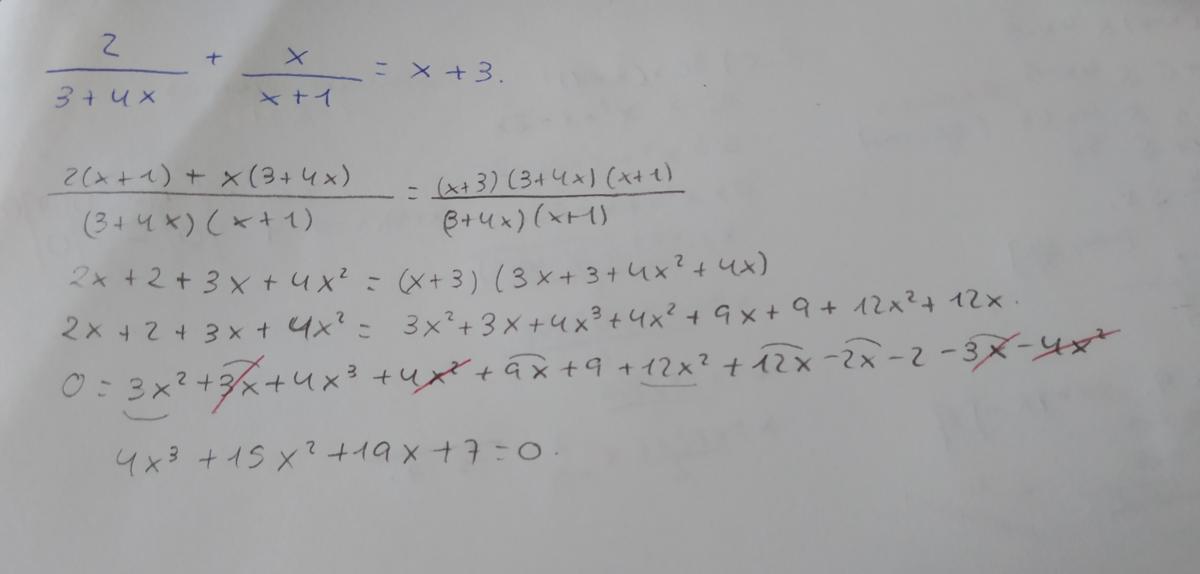 2/(3+4x) + x/(x+1) = x+3.
(2(x+1) + x(3+4x))/((3+4x)(x+1)) = ((x+3)(3+4x)(x+1))/((3+4x)(x+1))
2x+2+3x+4x² = (x+3)(3x+3+4x²+4x)
2x+2+3x+4x² = 3x²+3x+4x³+4x²+9x+9+12x²+12x.
0=3x²+3x+4x³+4x²+9x+9+12x²+12x-2x-2-3x-4x²
4x³+15x²+19x+7=0.